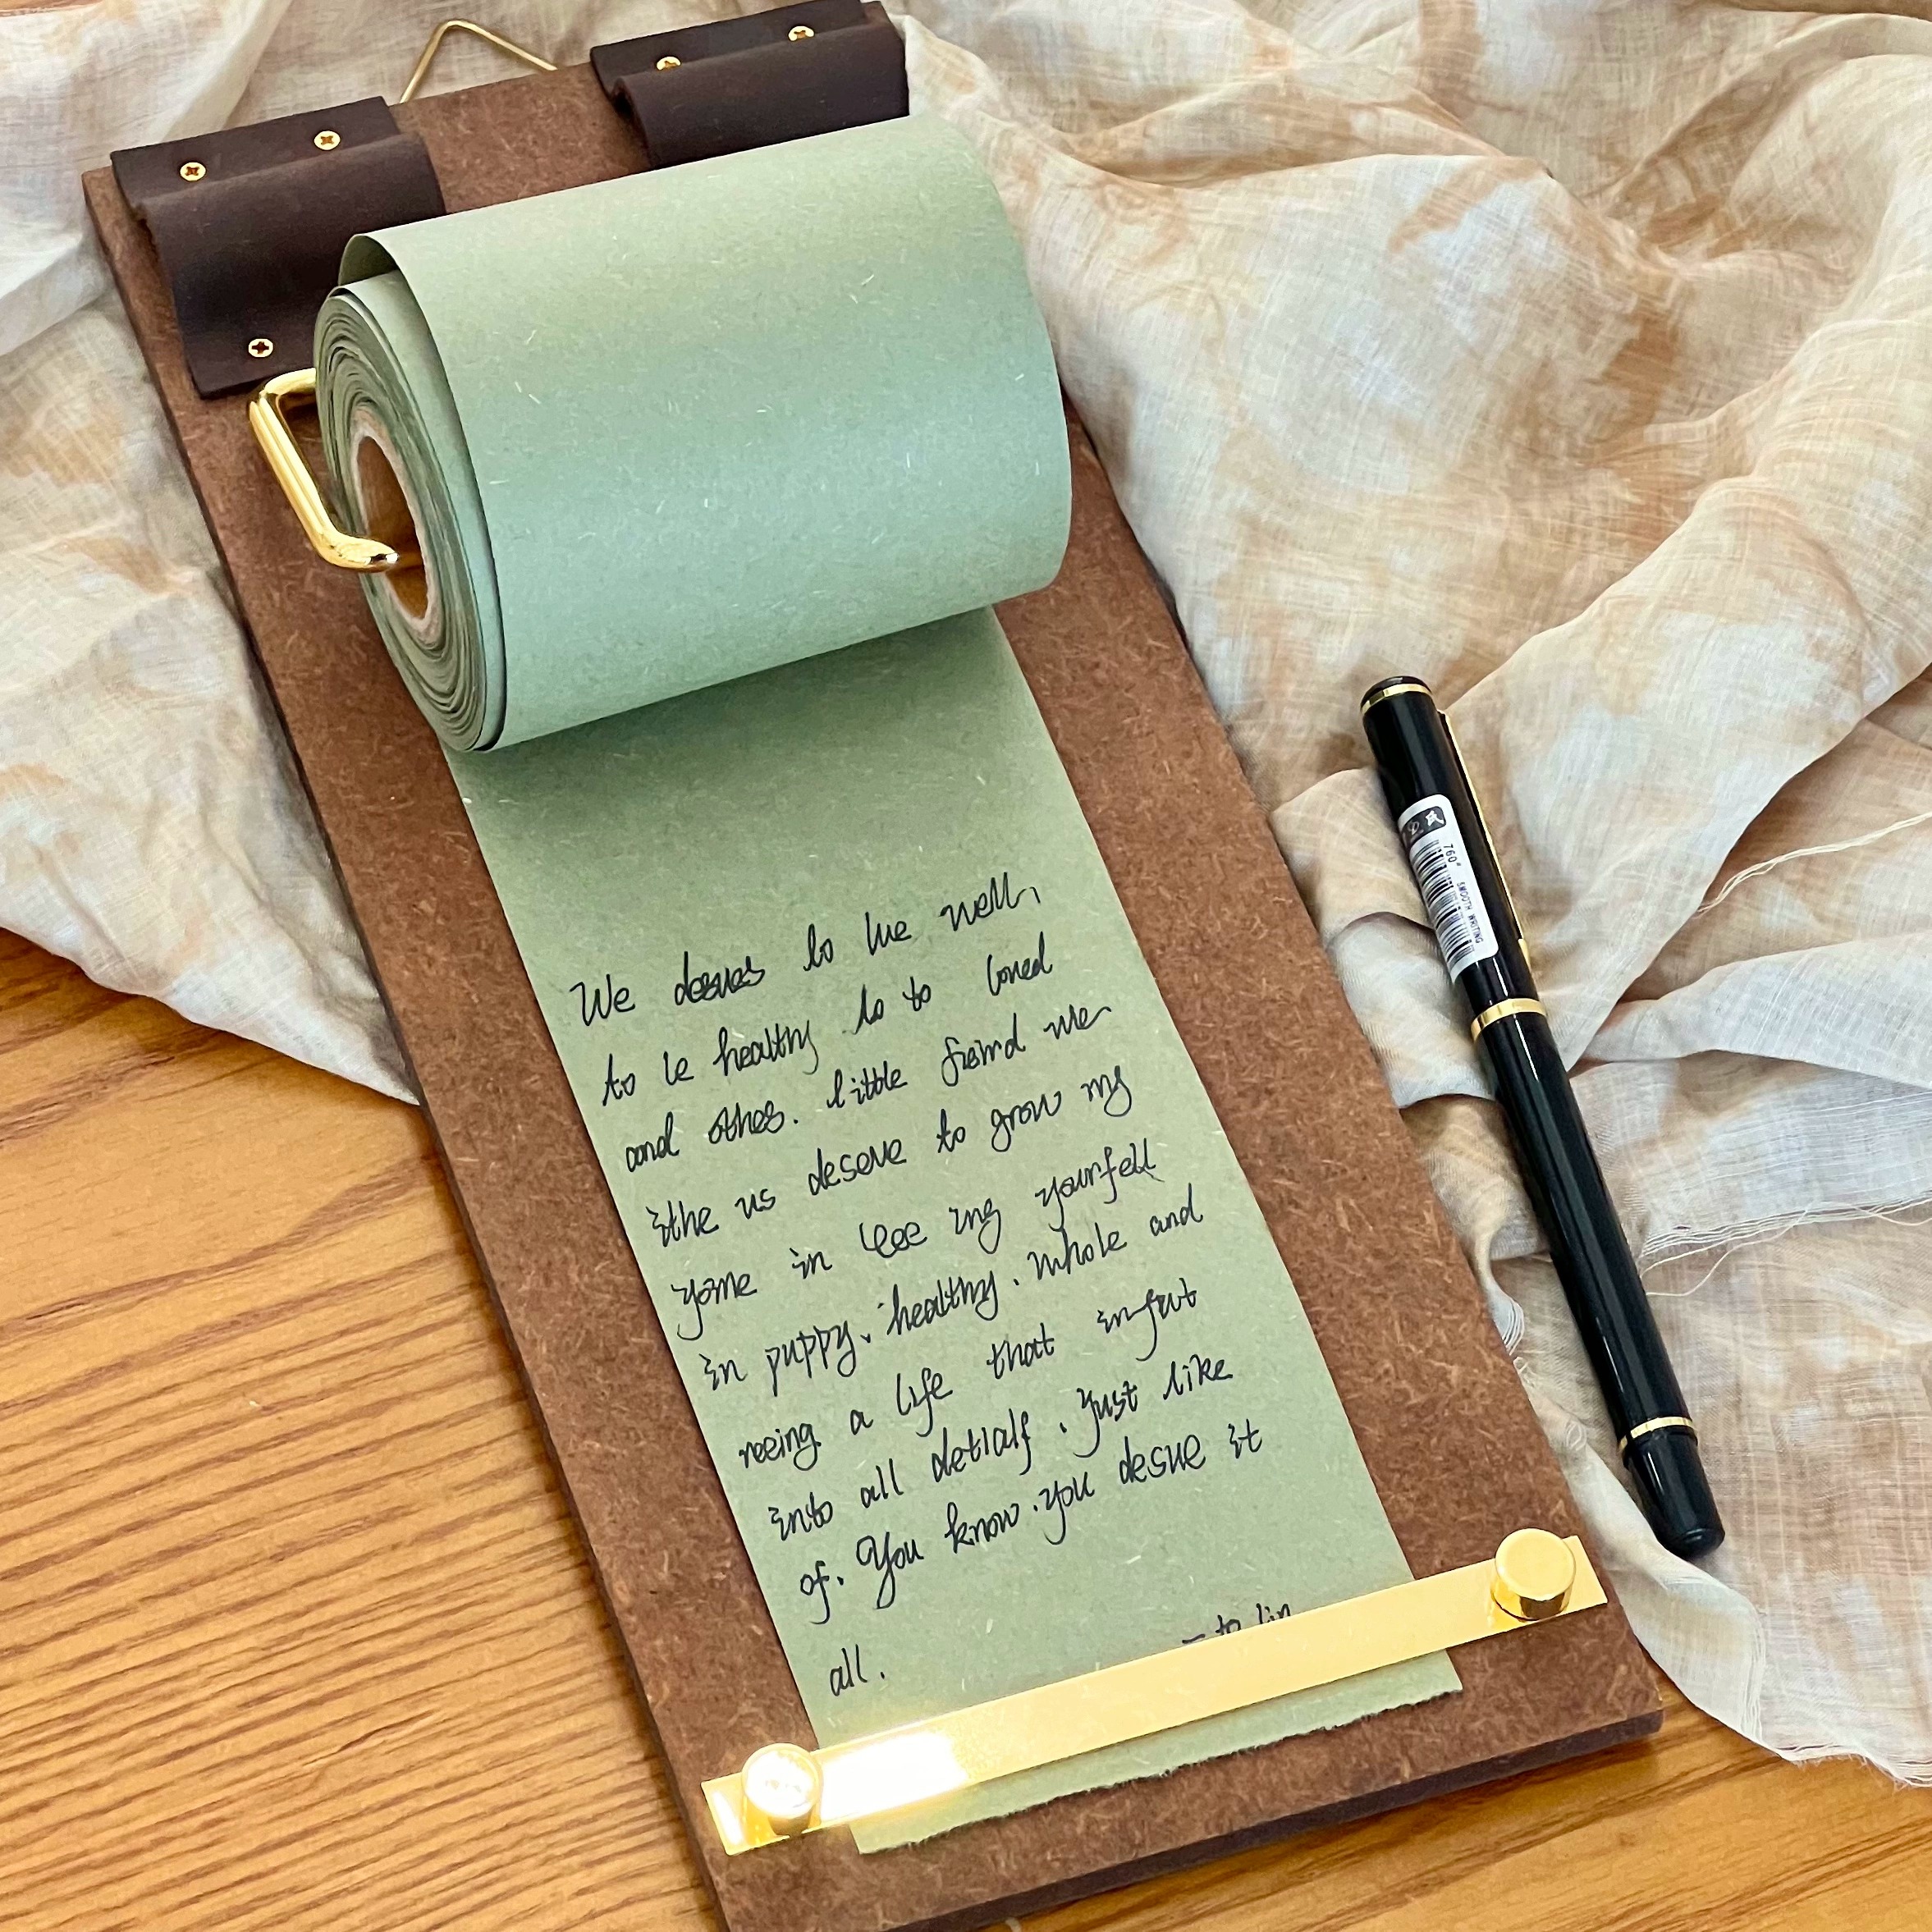 We desues to lue well,
to le healthy to to loved
and othes. little fieind me
ithe us deseve to grow my
yome in ing yourfell
in puppy. healthy. whole and
reeing a life that infut
into all detialf. just like
of. You know. you desue it
all.
to lin
760#
SMOOTH WRITING